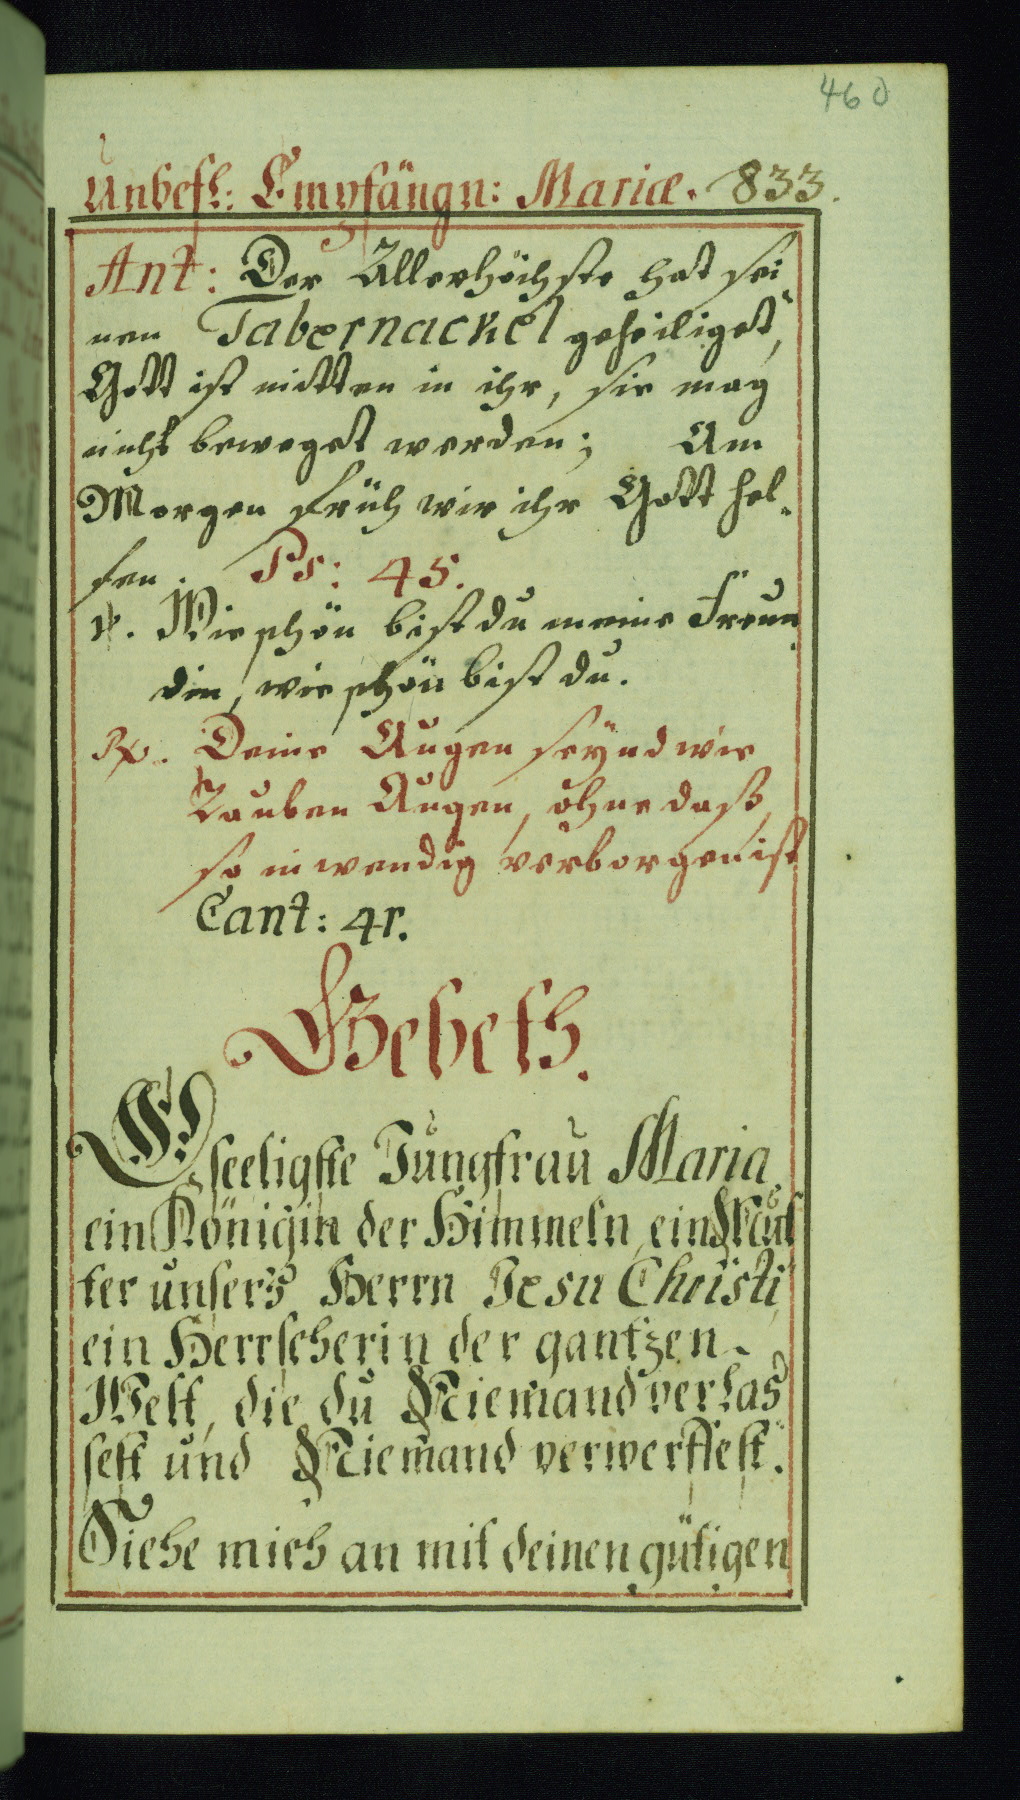 460
Unbefl: Empfängn: Mariæ. 833.
Ant: Der Allerhöchste hat sei-
nen Tabernackel geheiliget,
Gott ist mitten in ihr, sie mag
nicht beweget werden; Am
Morgen früh wir ihr Gott hel-
fen. Ps: 45.
℣. Wie schön bist du meine Freun-
din, wie schön bist du.
℟. Deine Augen seynd wie
Tauben Augen, ohne daß,
so inwendig verborgen ist
Cant: 4r.
Gebeth.
O seeligste Jungfrau Maria
ein Königin der Himmeln, ein Mut
ter unsers Herrn Jesu Christi,
ein Herrscherin der gantzen
Welt, die du Niemand verlas
sest und Niemand verwerffest.
Siehe mich an mit deinen gütigen